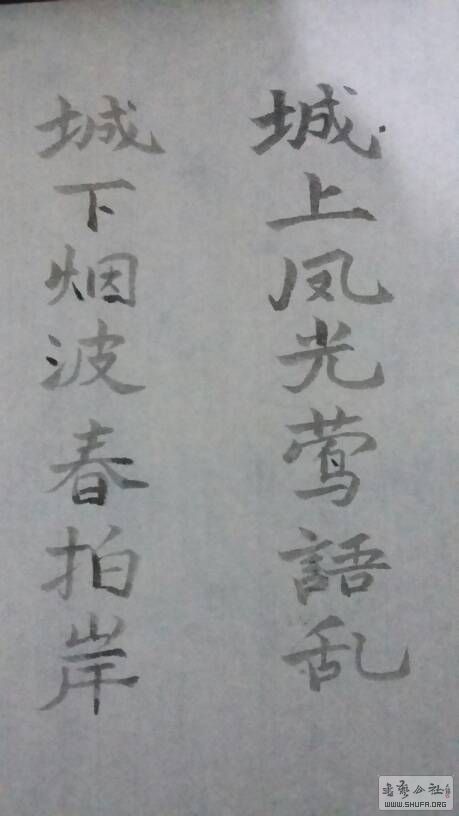 城上凤光莺語乱
城下烟波春拍岸
書藝公社
WWW.SHUFA.ORG